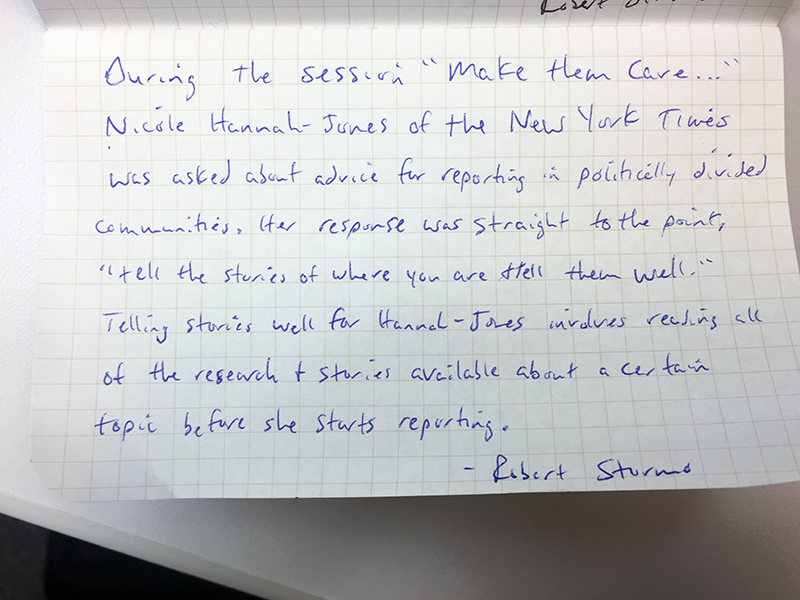 Robert
During the session "Make them Care..."
Nicole Hannah-Jones of the New York Times
was asked about advice for reporting in politically divided
communities. Her response was straight to the point,
"tell the stories of where you are + tell them well."
Telling stories well for Hannah-Jones involves reading all
of the research + stories available about a certain
topic before she starts reporting.
- Robert Sturms